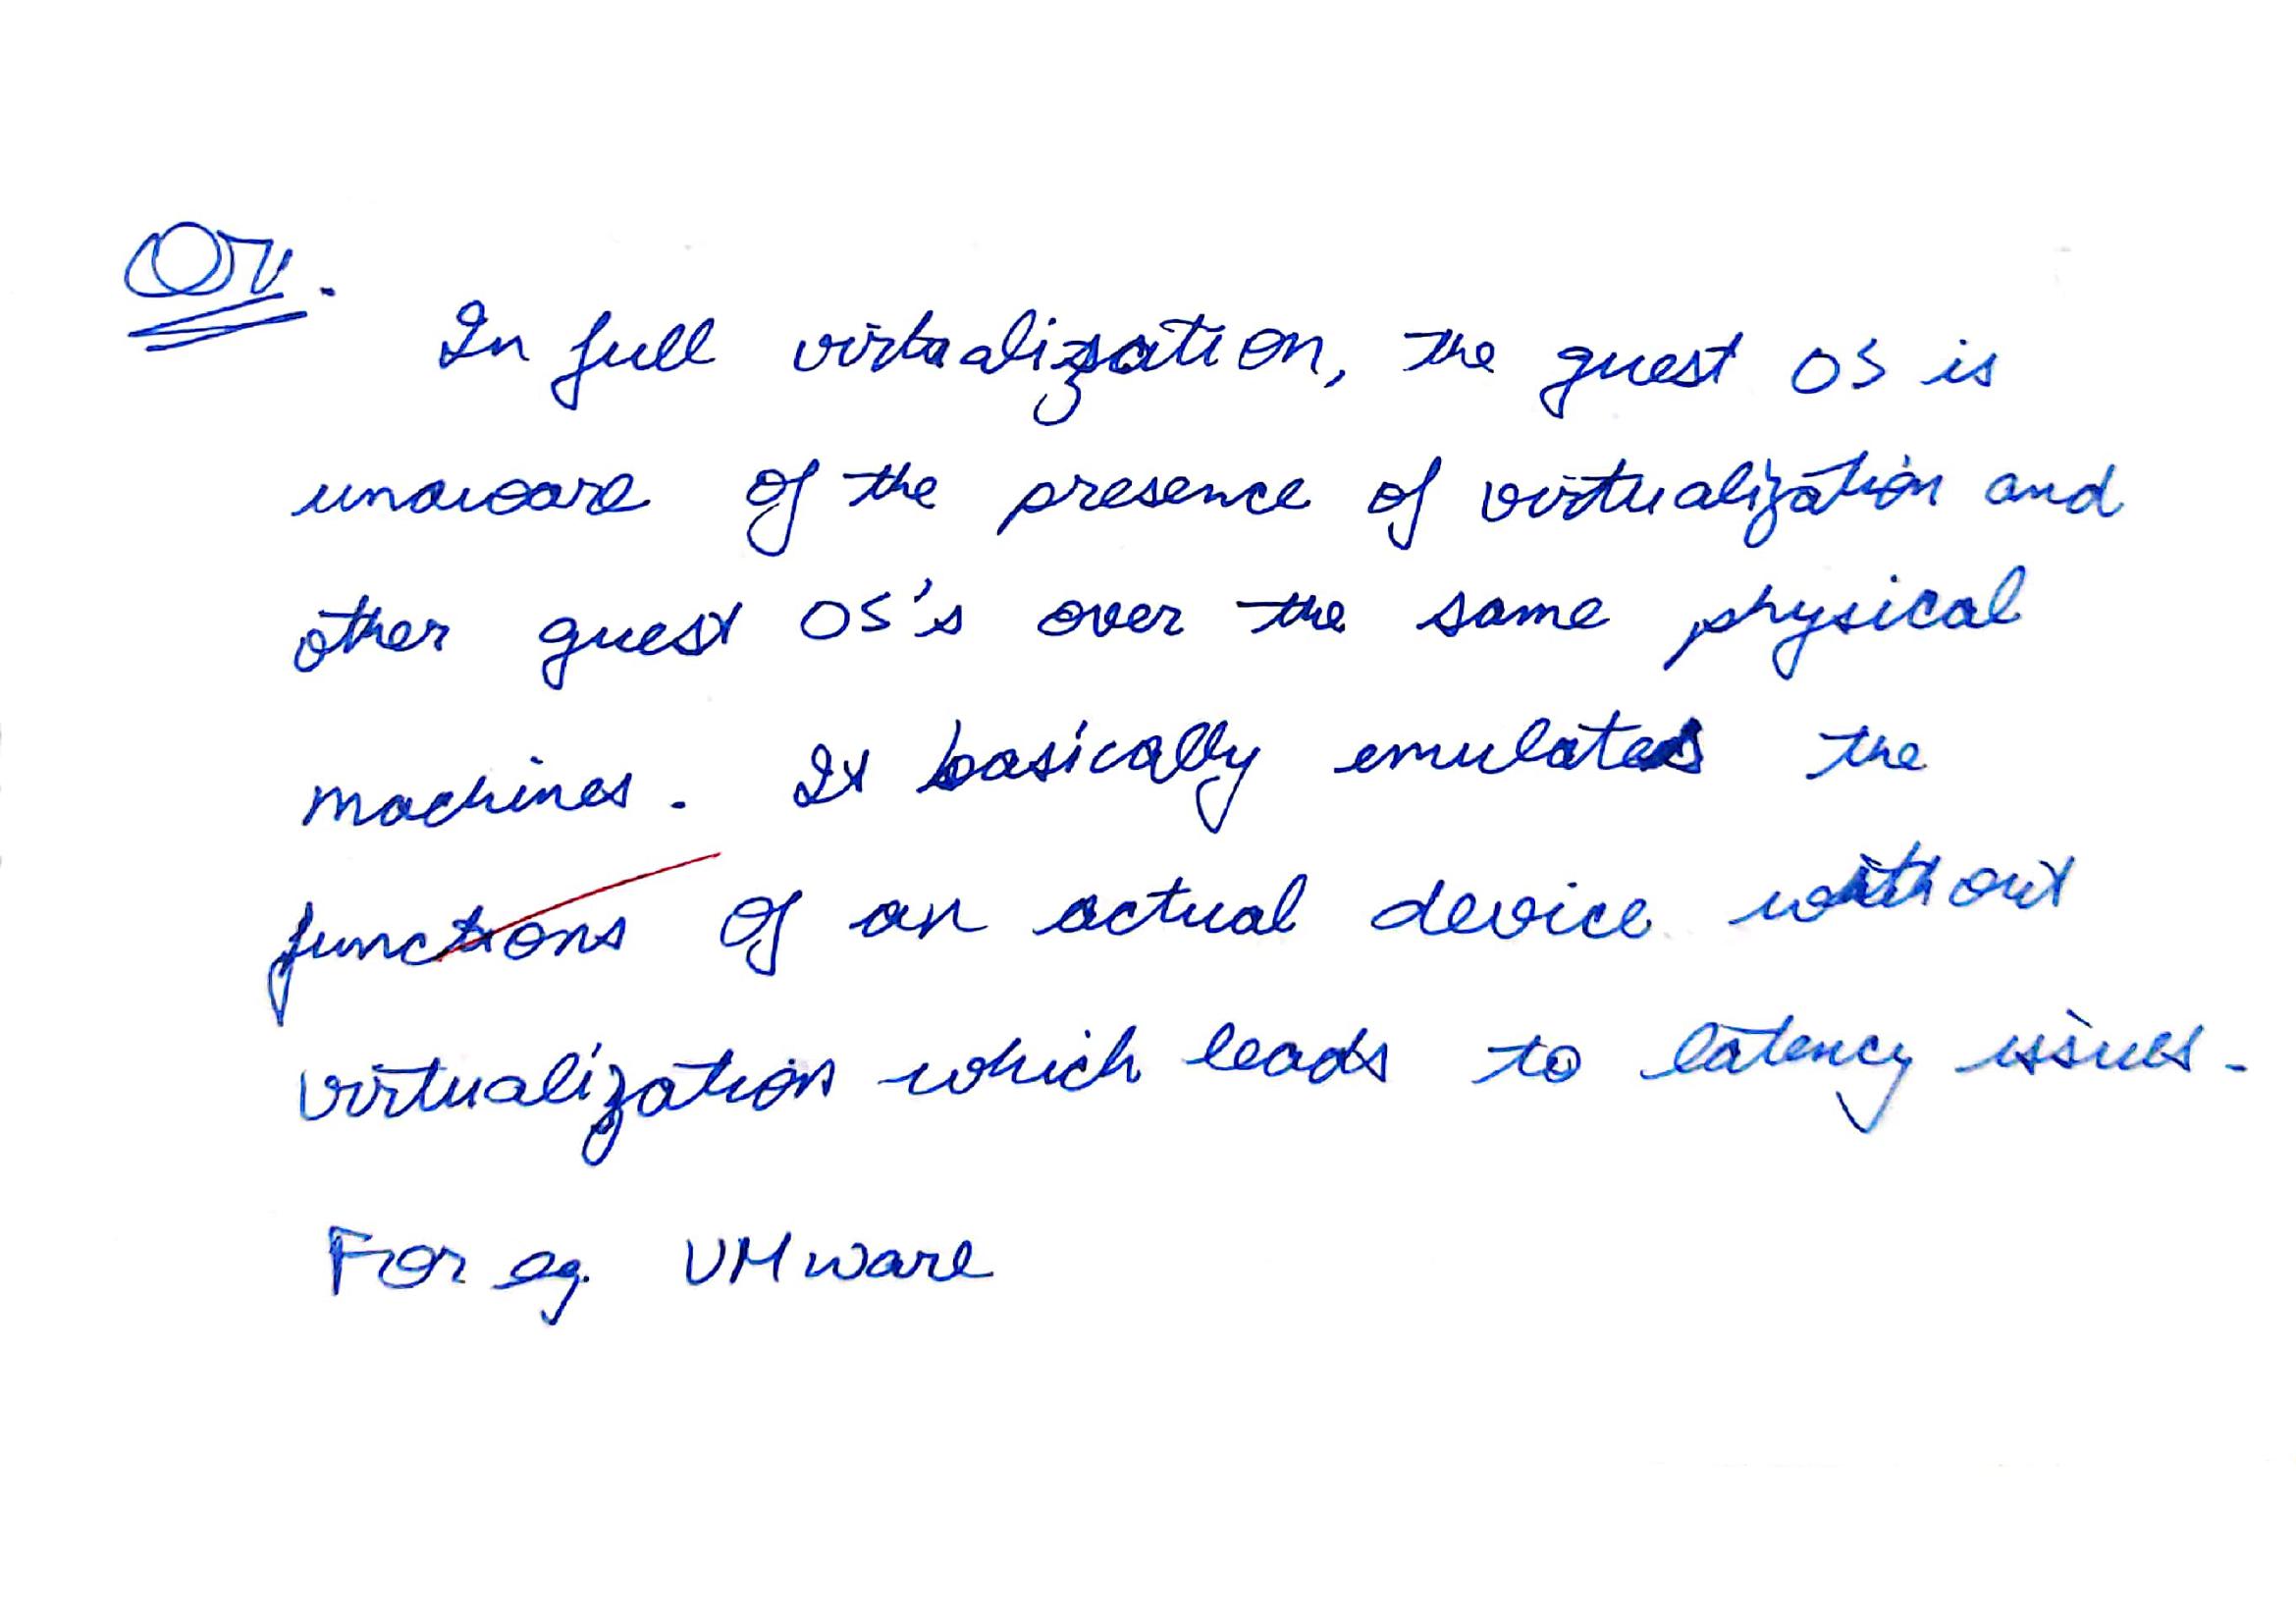 Q7.
In full virtualization, the guest OS is
unaware of the presence of virtualization and
other guest OS's over the same physical
machines. It basically emulates the
functions of an actual device without
virtualization which leads to latency issues.
For eg. VMware